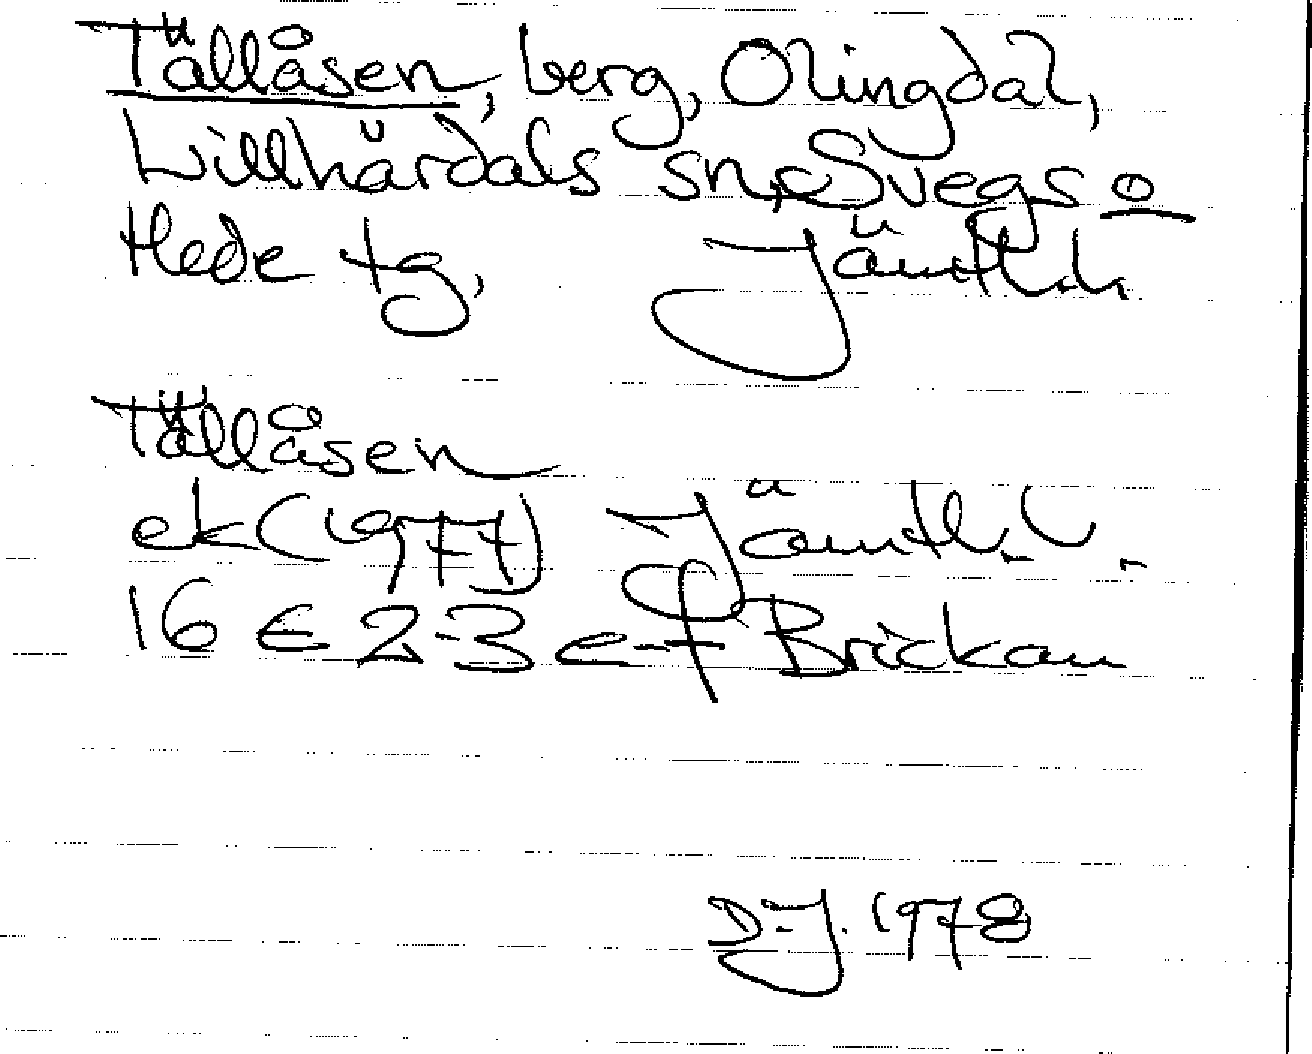 Tällåsen, berg, Olingdal,
Lillhärdals sn, Svegs o
Hede tg, Jämtl.
Tällåsen
ek (1977) Jämtl. l.
16 E 2-3 e-f Brickan
D.J. 1978